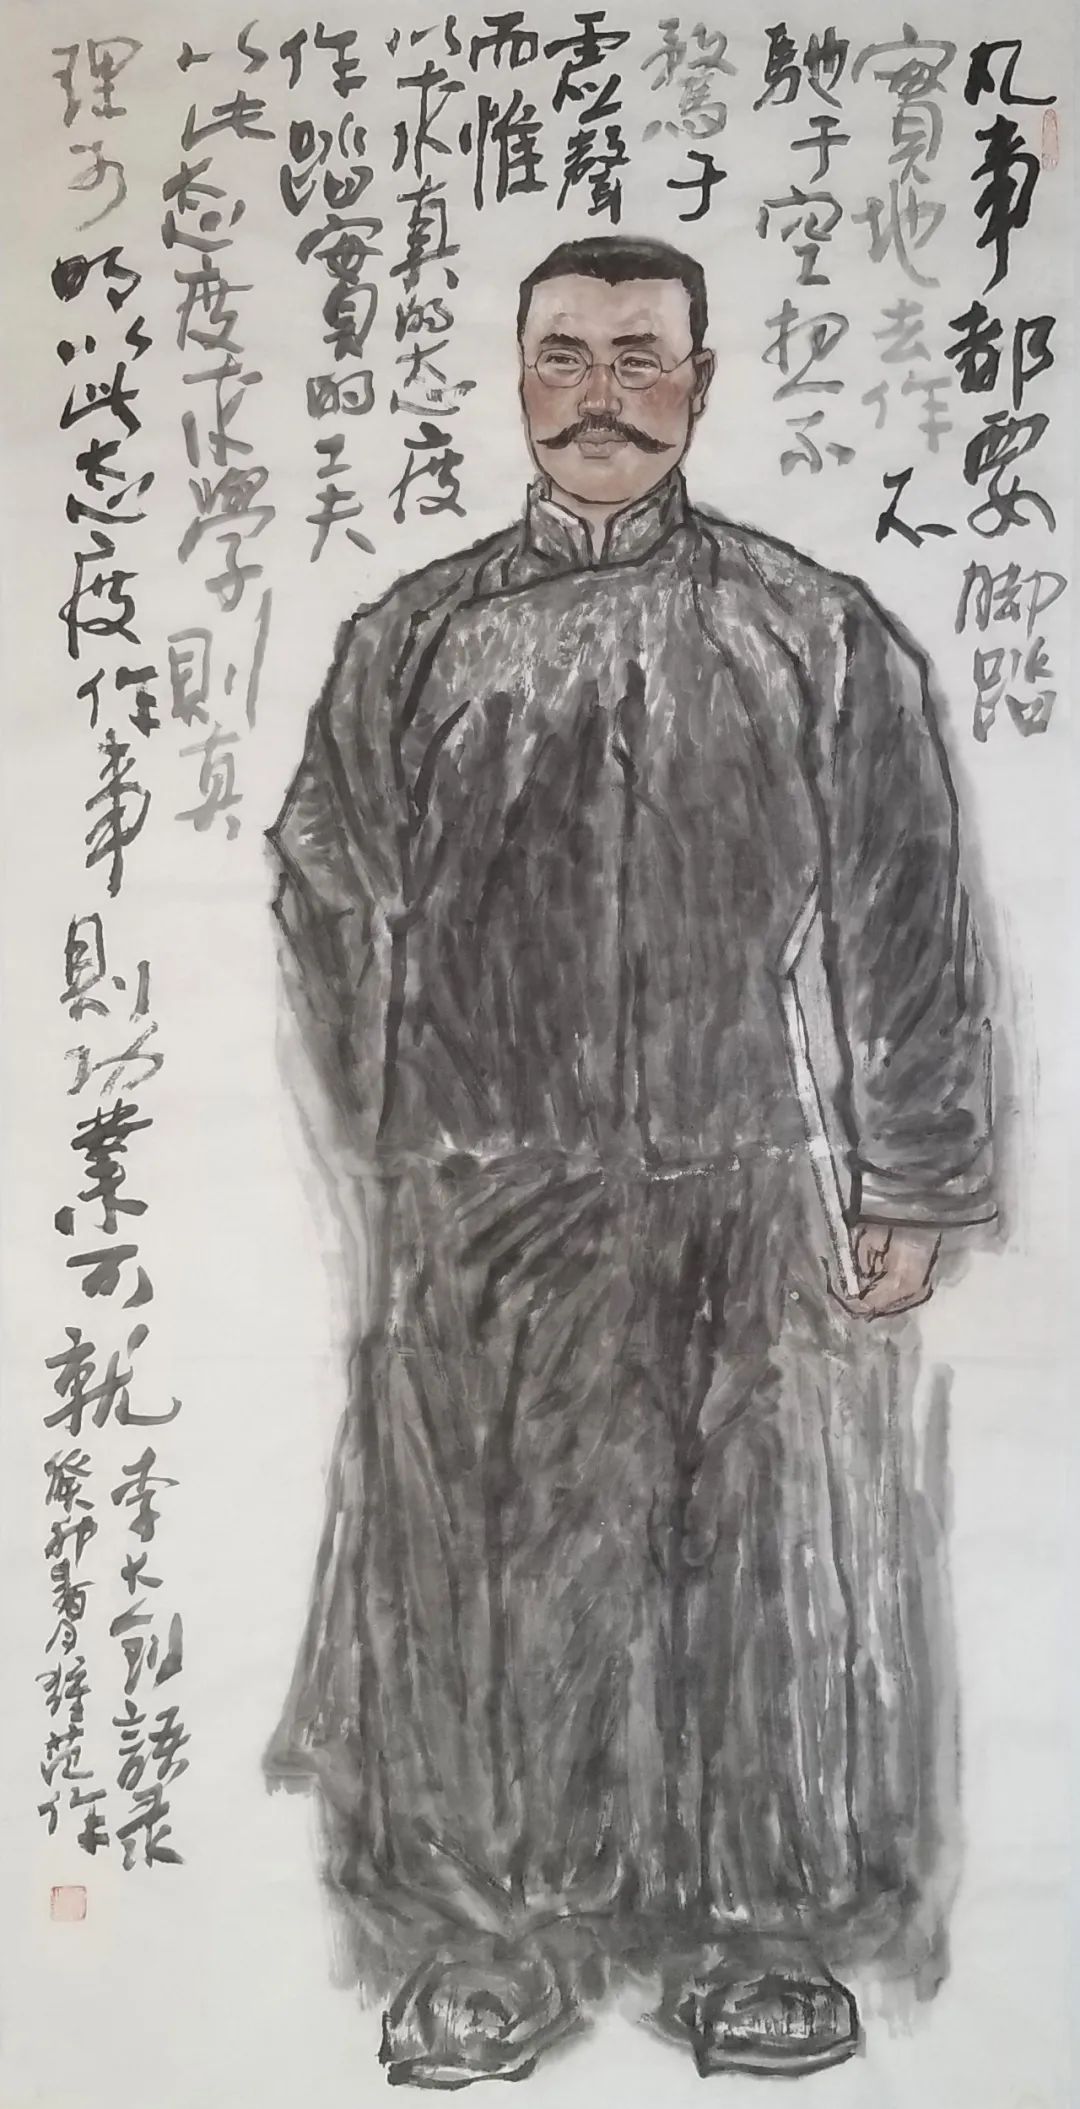 凡事都要脚踏
實地去作不
馳于空想不
騖于
虛聲
而惟
以求真的态度
作踏實的工夫
以此态度求學則真
理可明以此态度作事則功業可就
李大钊語录
癸卯暑月范作